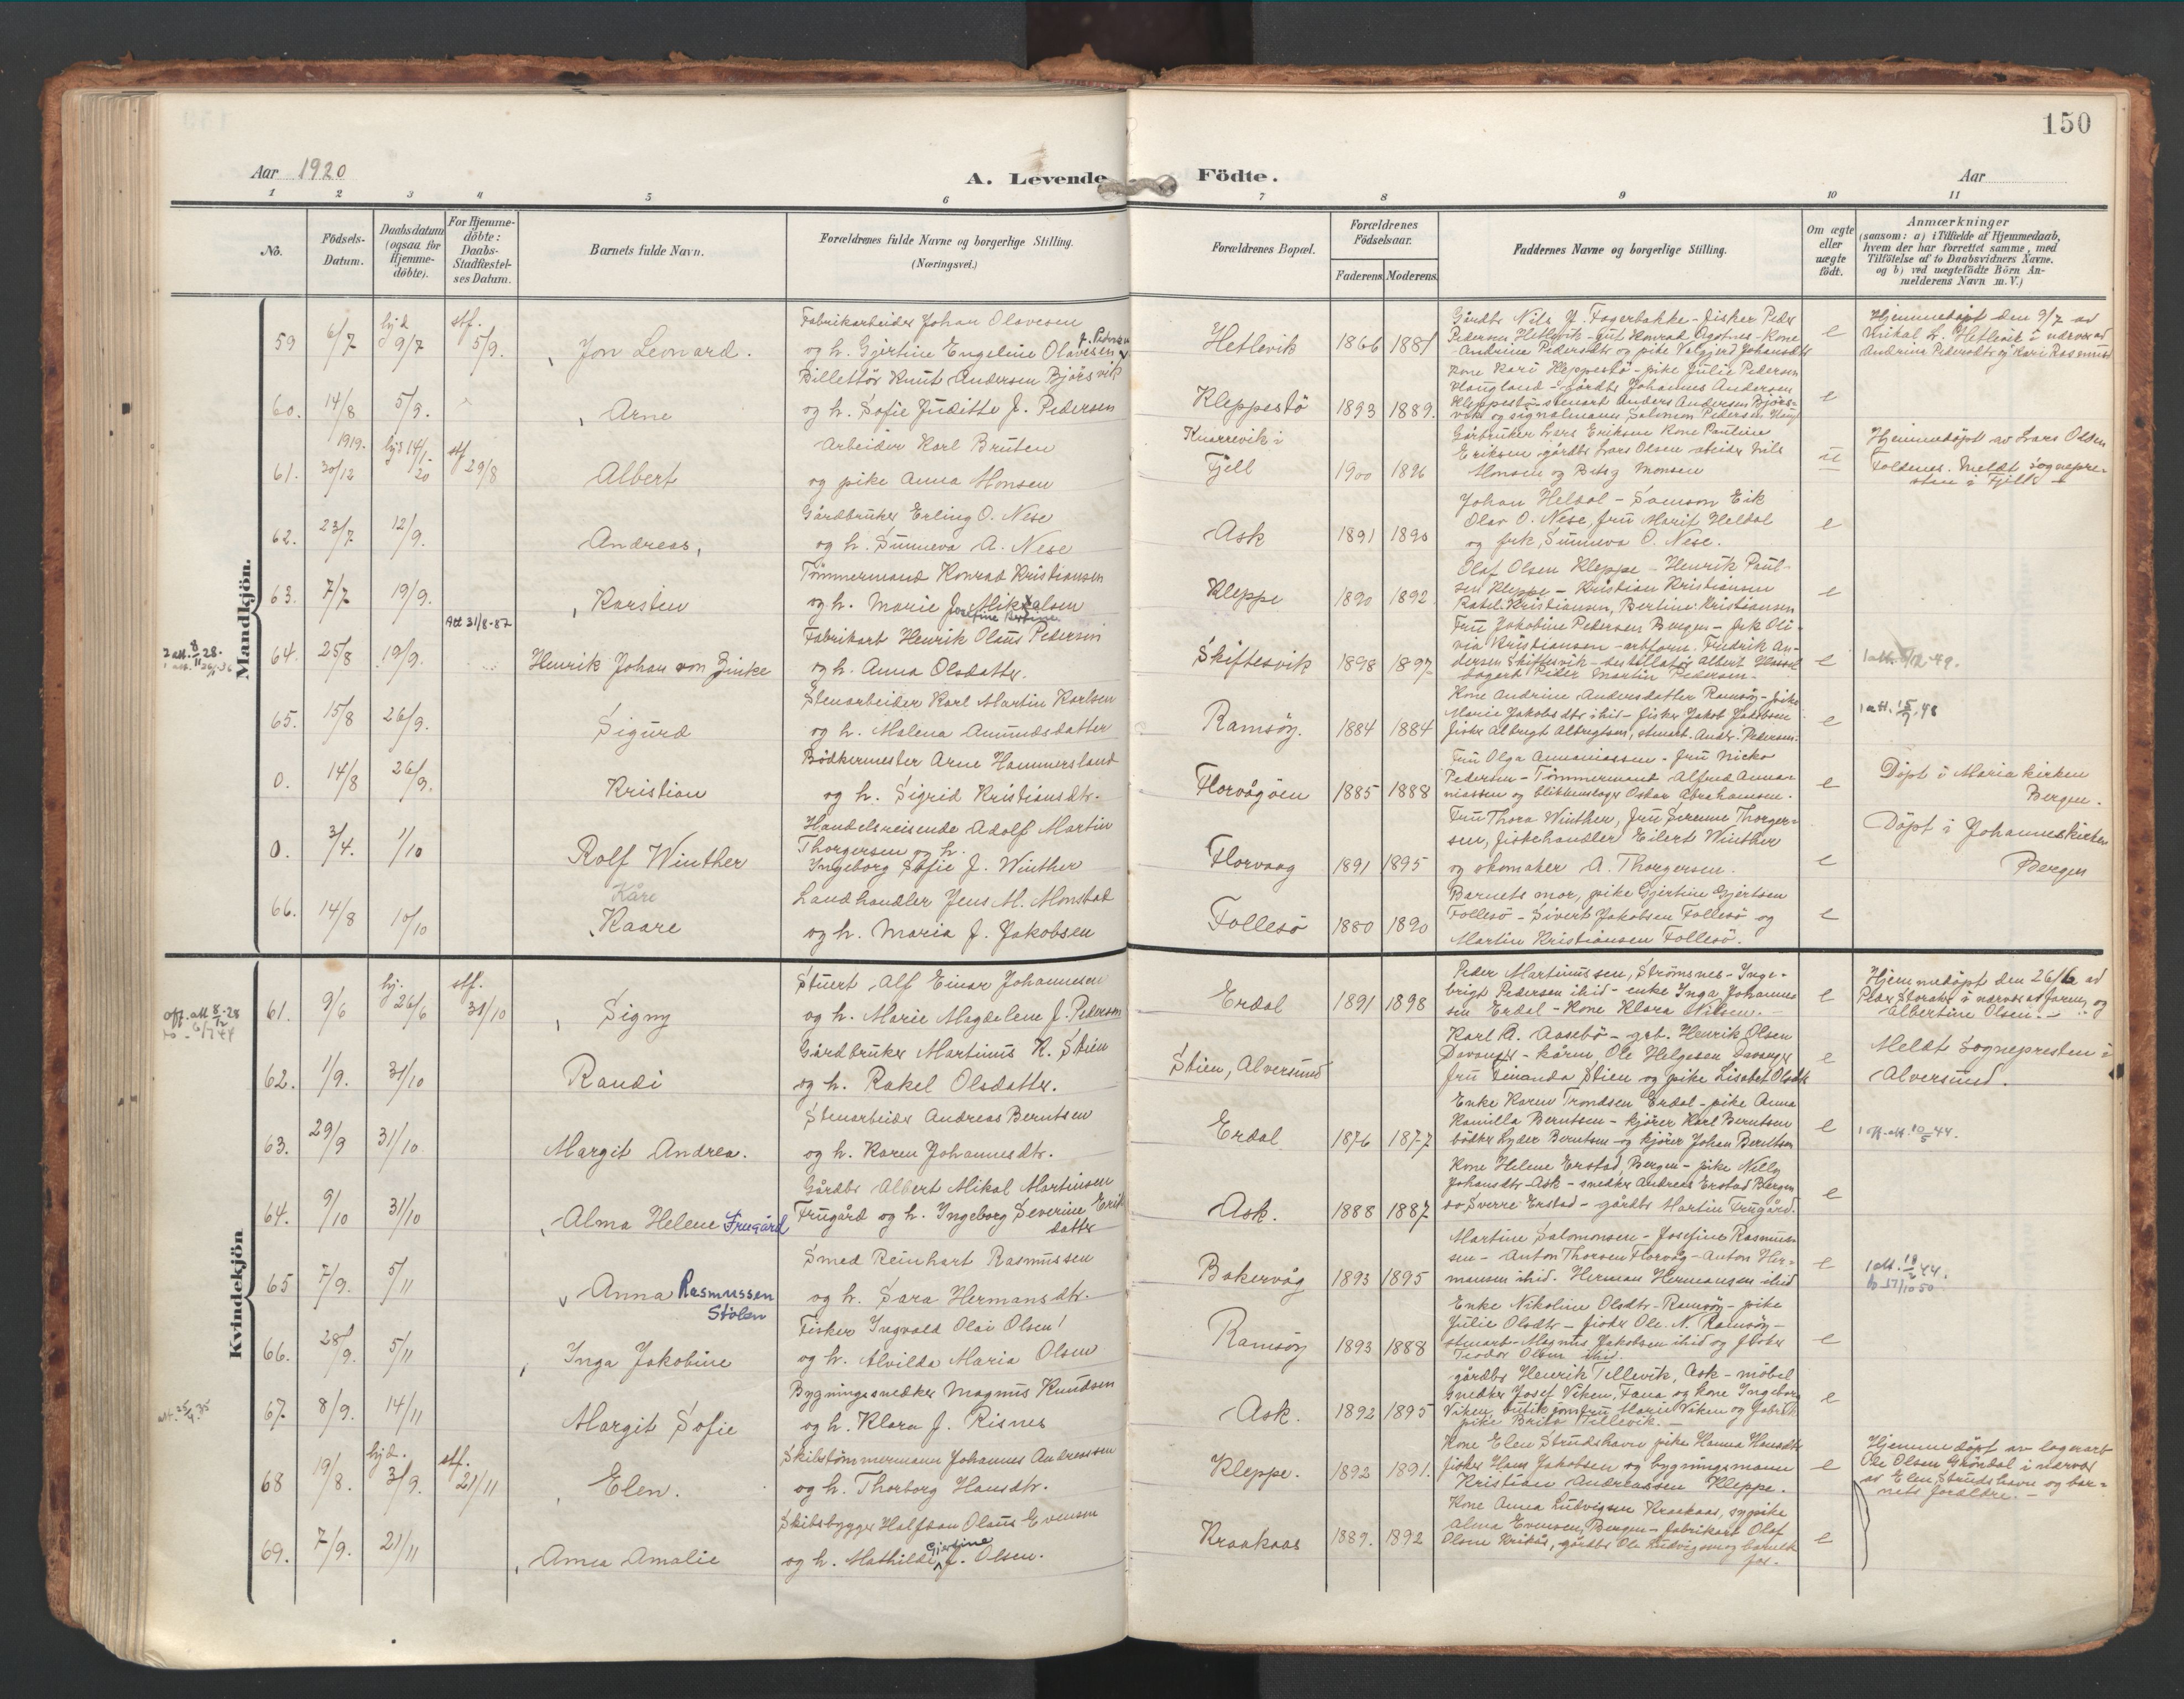 150
Aar 1920
A. Levende
Födte.
Aar
1 2 3 4 5 6 7 8 9 10 11
No.
Födsels-Datum.
Daabsdatum (ogsaa for Hjemme-döbte).
For Hjemme-döbte: Daabs-Stadfæstel-ses Datum.
Barnets fulde Navn.
Forældrenes fulde Navne og borgerlige Stilling.
(Næringsvei.)
Forældrenes Bopæl.
Forældrenes Födselsaar.
Faderens Moderens
Faddernes Navne og borgerlige Stilling.
Om ægte eller uægte födt.
Anmærkninger
(saasom: a) i Tilfælde af Hjemmedaab,
hvem der har forrettet samme, med
Tilföielse af to Daabsvidners Navne.
og b) ved uægtefödte Börn An-
melderens Navn m.V.)
Mandkjön.
59 6/7 hjd 9/7 stf. 5/9. Jon Leonard.
Fabrikarbeider Johan Olavesen
og h. Gjertine Engeline Olavesen f. Pedersen
Hetlevik 1866 1881
Gårdbr Nils Y. Fagerbakke - Fisker Peder
Pedersen Hetlevik - gut Konrad Agotnes - Kone
Andrine Pedersdtr og pike Valgjerd Johansdtr
e
Hjemmedøpt den 9/7 av
Mikal L. Hetlevik i nærvær av
Andrine Pedersdtr og Kari Rasmusd
60. 14/8 5/9. Arne
Billettör Knut Andersen Bjørsvik
og h. Sofie Juditte f. Pedersen
Kleppestö 1893 1889.
Kone Kari Kleppestö - pike Julie Pedersen
Haugland - gårdbr Johannes Andersen
Kleppestö - stenarb Anders Andersen Bjørs-
vik og signalmann Salomon Pedersen Haug
e
61. 1919. 30/12 hjd 14/1-20 stf 29/8 Albert
Arbeider Karl Bruten
og pike Anna Monsen
Knarrevik i
Fjell 1900 1896
Gårbruker Lars Eriksen Kone Pauline
Eriksen gårdbr Lars Olsen arbeider Nils
Monsen og Betsy Monsen
u
Hjemmedöpt av Lars Olsen
Foldnes. Meldt sognepre-
sten i Fjell
62. 23/7 12/9. Andreas,
Gårdbruker Erling O. Nese
og h. Sunneva A. Nese
Ask 1891 1890
Johan Heldal - Samson Eik
Olav O. Nese, fru Marit Heldal
og frk, Sunneva O. Nese.
e
63. 7/7 19/9. Karsten
Tömmermand Konrad Kristiansen
og h. Marie J. Mikkalsen
Kleppe 1890 1892
Olaf Olsen Kleppe - Henrik Paul-
sen Kleppe - Kristian Kristiansen
Rakel Kristiansen, Bertine Kristiansen
e
Att 31/8-87
2 att. 8/11 28.
64. 25/8 19/9. Henrik Johan von Zinke
Fabrikarb Henrik Olaus Pedersen
og h. Anna Olsdatter.
Skiftesvik 1898 1897
Fru Jakobine Pedersen Bergen - frk Oli-
via Kristiansen - arbform. Fredrik An-
dersen Skiftesvik - destillatör Albert Hassel
bagers Peder Martin Pedersen
e
65. 15/8 26/9. Sigurd
Stenarbeider Karl Martin Karlsen
og h. Malena Amundsdatter
Ramsöy. 1884 1884
Kone Andrine Andersdatter Ramsöy - pike
Marie Jakobsdtr ibid - fisker Jakob Jakobsen
fisker Albregt Albregtsen, stenarb. Andr. Pedersen.
e
1 att. 15/7.48
0. 14/8 26/9. Kristian
Bödkermester Arne Hammersland
og h. Sigrid Kristiansdtr.
Florvågöen 1885 1888
Fru Olga Annaniassen - fru Nicko
Pedersen - Tömmermand Alfred Anna-
niassen og blikkenslager Oskar Abrahamsen.
e
Döpt i Mariakirken
Bergen.
0. 3/4. 1/10 Rolf Winther
Handelsreisende Adolf Martin
Thorgersen og h.
Ingeborg Sofie J. Winther
Florvaag 1891 1895
Fru Thora Winther, fru Serenne Thorger-
sen, fiskehandler Eilert Winther
og skomaker A. Thorgersen.
e
Döpt i Johanneskirken
Bergen
Kåre
66. 14/8 10/10 Kaare
Landhandler Jens M. Monstad
og h. Maria J. Jakobsen
Follesö 1880 1890
Barnets mor, pike Gjertine Gjertsen
Follesö - Sivert Jakobsen Follesö og
Martin Kristiansen Follesö.
e
Kvindekjön
off. att 8/12-28
61. 9/6 hj. 26/6 stf. 31/10 Signy
Stuert Alf Einar Johannesen
og h. Marie Magdelene J. Pedersen
Erdal 1891 1898
Peder Martinussen, Strömsnes - Inge-
brigt Pedersen ibid - enke Inga Johannes
sen Erdal - Kone Klara Nilsen.
e
Hjemmedöpt den 26/6 av
Peder Storaker i nærvær av faren og
Albertine Olsen.
62. 1/9. 31/10 Randi
Gårdbruker Martinus K. Stien
og h. Rakel Olsdatter.
Stien, Alversund
Karl A. Aasebö - grb. Henrik Olsen
Davanger - kårm. Ole Helgesen Davanger
fru Finanda Stien og pike Lisabet Olsdtr
e
Meldt Sognepresten i
Alversund.
63. 29/9 31/10 Margit Andrea.
Stenarbeider Andreas Berntsen
og h. Karen Johannesdtr.
Erdal 1876 1877
Enke Karen Trondsen Erdal - pike Anna
Kamilla Berntsen - kjörer Karl Berntsen
bödker Lyder Berntsen og kjörer Johan Berntsen
e
1 off. att. 10/5 44.
64. 9/10 31/10 Alma Helene Frugård
Gårdbr Albert Mikal Martinsen
Frugård og h. Ingeborg Severine Erik
datter
Ask. 1888 1887
Kone Helene Erstad, Bergen - pike Nilly
Johansdtr Ask - snedker Andreas Erstad Bergen
do Sverre Erstad - gårdbr Martin Frugård.
e
65 7/9. 5/11 Anna Rasmussen
Stölen
Smed Reinhart Rasmussen
og h. Sara Hermansdtr.
Bakervåg 1893 1895
Martine Salomonsen - Josefine Rasmus-
sen - Anton Thorsen Florvåg - Anton Her-
mansen ibid. Herman Hermansen ibid
e
1 att. 18/2 44.
66. 28/9. 5/11 Inga Jakobine
Fisker Ingvald Olai Olsen
og h. Alvilda Maria Olsen
Ramsöy 1893 1888
Enke Nikoline Olsdtr - Ramsöy - pike
Julie Olsdtr - fisker Ole. N. Ramsöy -
stenarb - Magnus Jakobsen ibid og fisker
Teodor Olsen ibid.
e
67. 8/9. 14/11 Margit Sofie
Bygningssnedker Magnus Knudsen
og h. Klara J. Risnes
Ask. 1892 1895
gårdbr Henrik Tellevik, Ask - möbel
snedker Josef Viken, Fana og kone Ingeborg
Viken, butikjomfru Marie Viken og fabrik
pike Brita Tellevik.
e
68 19/8. hjd. 3/9. stf. 21/11 Elen.
Skibstömmermann Johannes Andreassen
og h. Thorborg Hansdtr.
Kleppe. 1892 1891.
Kone Elen Strudshavn pike Hanna Hansdtr
fisker Hans Jakobsen og bygningsmann
Kristian Andreassen Kleppe.
e
Hjemmedöpt av lagerarb
Ole Olsen Gröndal i nærvær
av Elen Strudshavn og bar-
nets forældre.
69. 7/9. 21/11 Anna Amalie
Skibsbygger Halfdan Olaus Evensen
Gjertine
og h. Mathilde J. Olsen.
Kraakaas 1889. 1892
Kone Anna Ludvigsen Kraakaas, sypike
Alma Evensen, Bergen - fabrikarb Olaf
Olsen Kråkås, gårdbr Ole Ludvigsen og barnets
far.
e